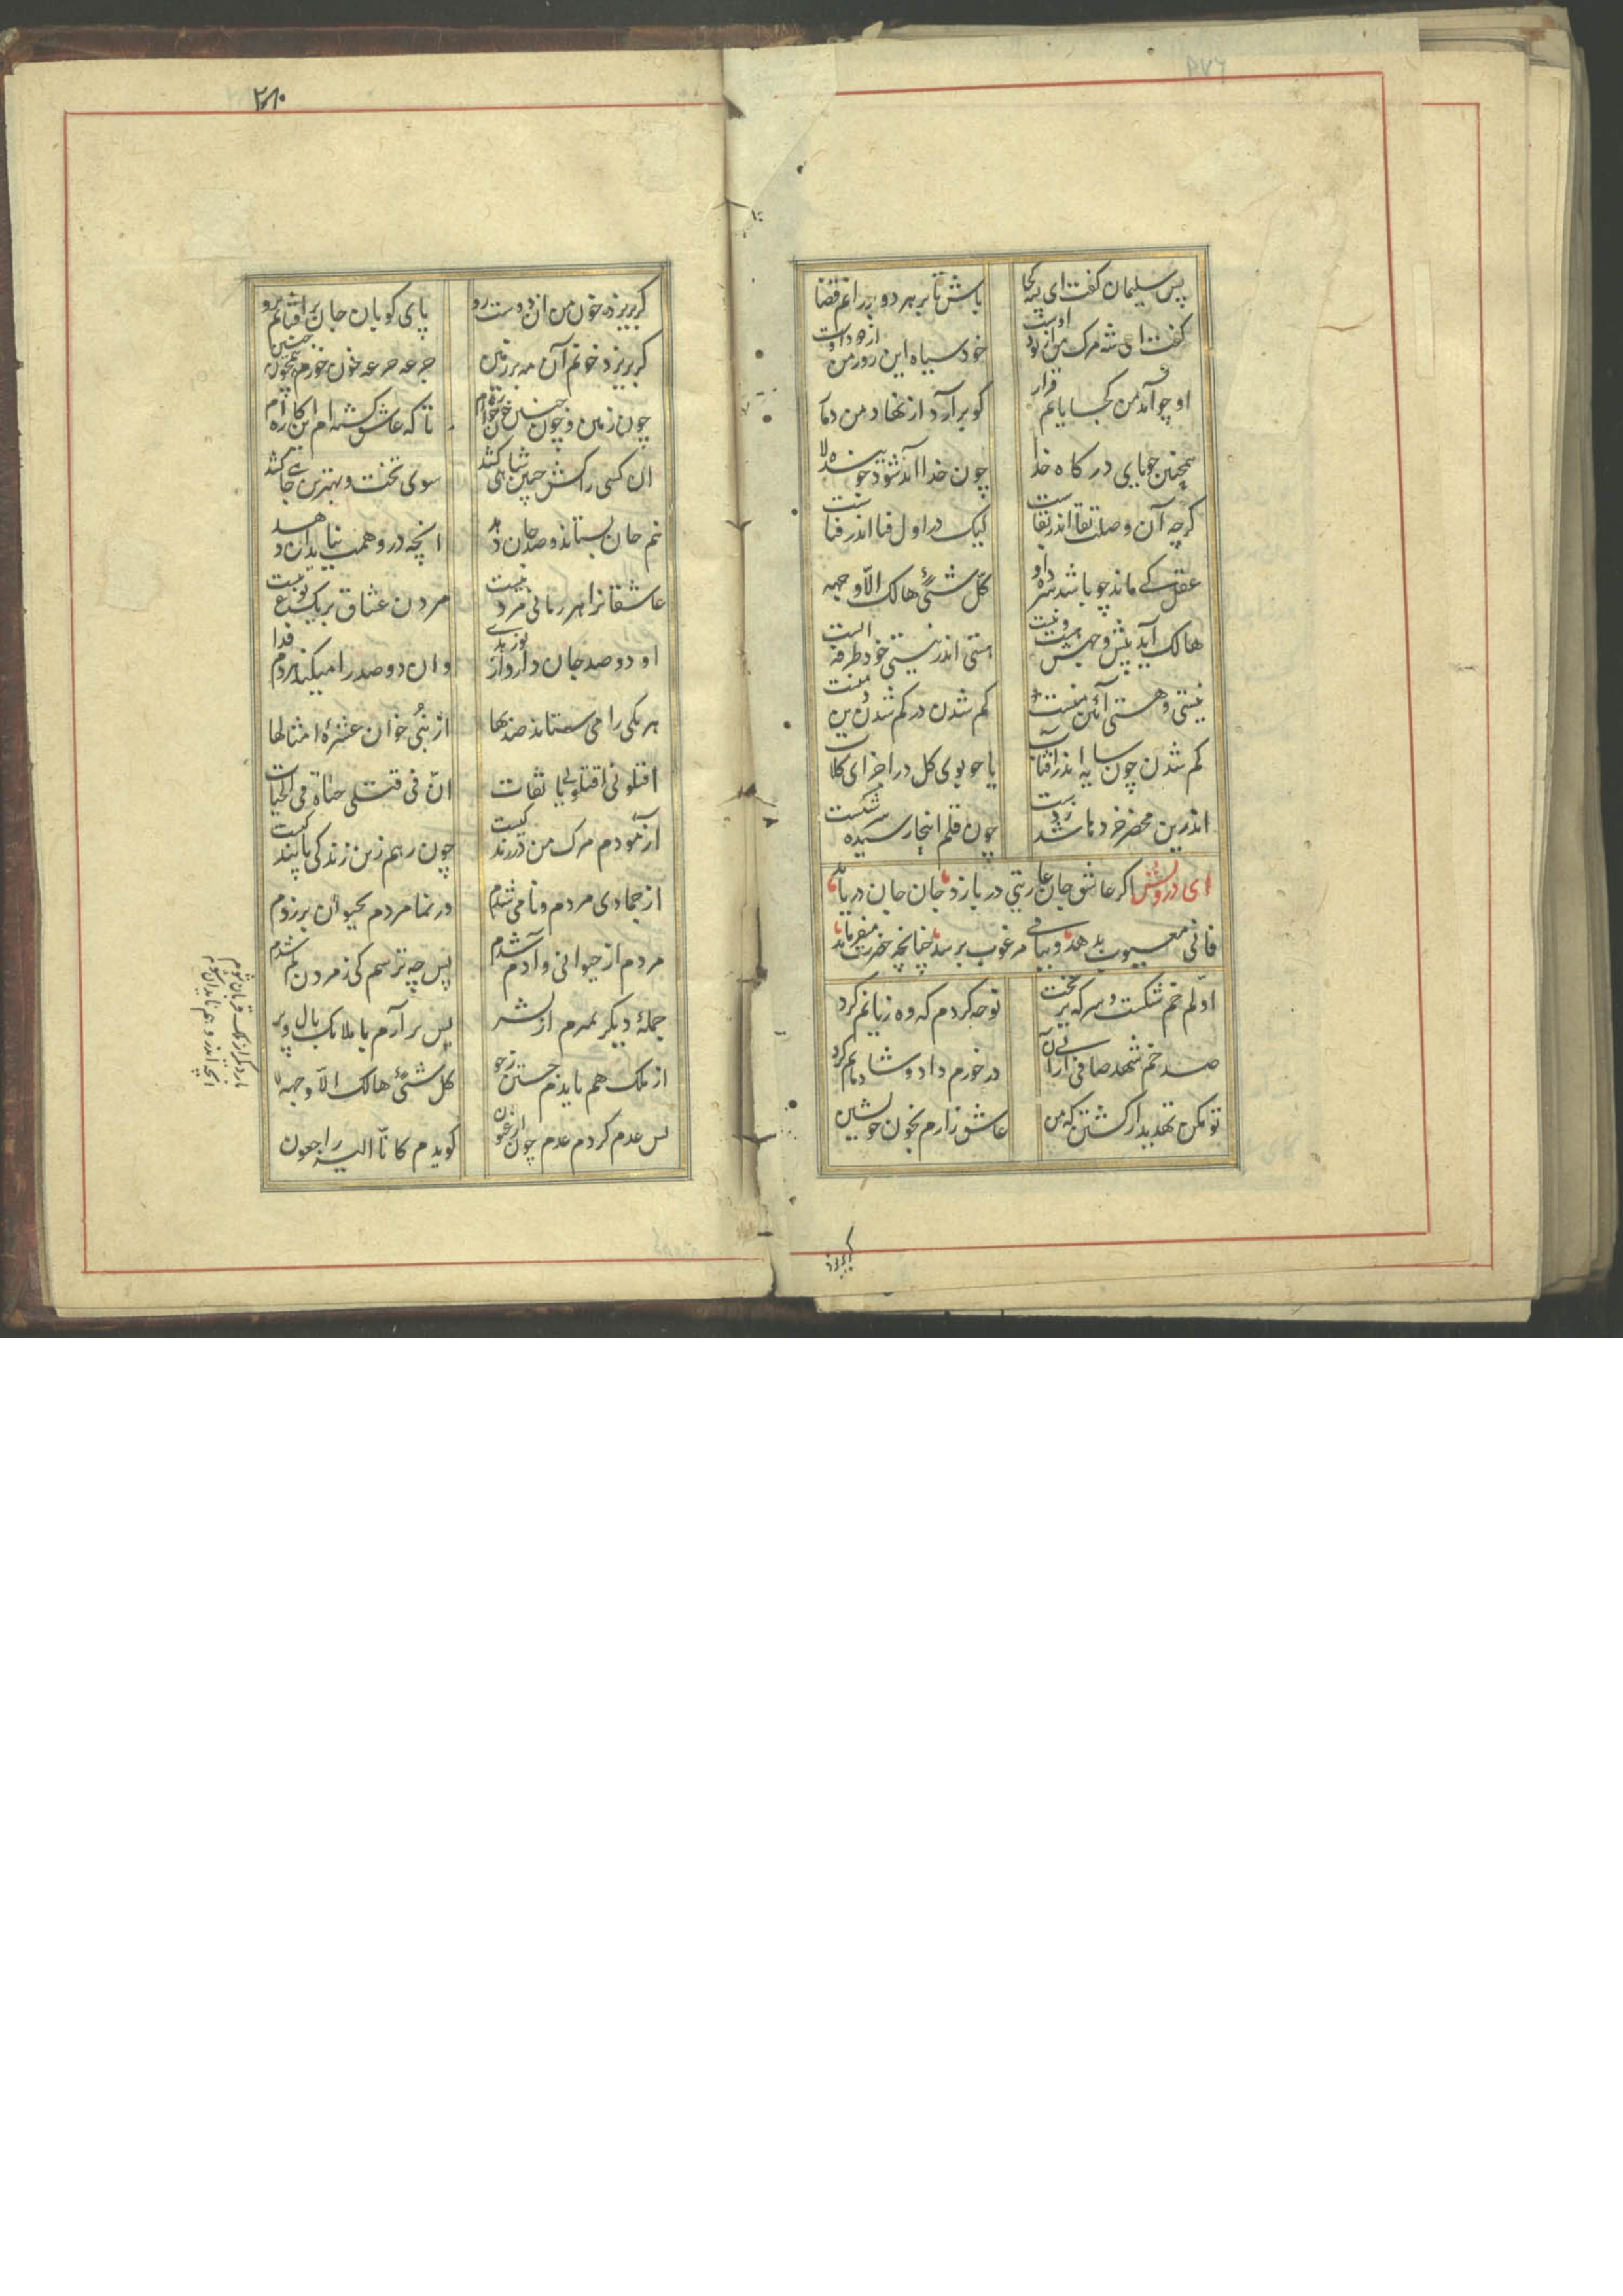 پس سلیمان گفت ای پشه کجا
باش تا بر هر دو رانم قضا
گفت ای شه مرگ من از بود اوست
خود سیاه این روز من از دود اوست
او چو آمد من کجا یابم قرار
کو برآرد از نهاد من دمار
همچنین جویای درگاه خدا
چون خدا آمد شود جوینده لا
گرچه آن وصلت بقا اندر بقاست
لیک در اول فنا اندر فناست
عقل کی ماند چو باشد سرده او
کل شئ هالک الا وجهه
هالک آید پیش وجهش هست و نیست
هستی اندر نیستی خود طرفه ایست
نیستی و هستی آئین منست
گم شدن در گم شدن دین منست
گم شدن چون سایه اندر آفتاب
یا چو بوی گل در اجزای گلاب
اندرین محضر خردها شد ز دست
چون قلم اینجا رسیده سر شکست
ای درویش اگر عاشق جان عاریتی در بازد جان جان دریابد
فانی معیوب بدهد و باقی مرغوب برسد چنانچه حضرت میفرماید
او لم خم شکست و سرکه بریخت
نوحه کردم که وه زیانم کرد
صد خم شهد صافی از پی آن
در خورم داد و شادمانم کرد
تو مکن تهدید از کشتن که من
عاشق زارم بخون خویشتن
گر بریزد
۲۸۰
گر بریزد خون من آن دوست رو
پای کوبان جان برافشانم برو
گر بریزد خونم آن مه بر زمین
جرعه جرعه خون خورم همچون جنین
چون زمین و چون جنین خون خواره‌ام
تا که عاشق گشته‌ام این کاره‌ام
آن کسی را کش چنین شاهی کشد
سوی تخت و بهترین جاهی کشد
نیم جان بستاند و صد جان دهد
آنچه در وهمت نیاید آن دهد
عاشقانرا هر زمانی مردنیست
مردن عشاق بر یک نوع نیست
او دو صد جان دارد از نور هدی
وان دو صد را میکند هر دم فدا
هر یکی را می ستاند صد بها
از نبی خوان عشرة امثالها
اقتلونی اقتلونی یا ثقات
ان فی قتلی حیاة فی الحیات
آزمودم مرگ من در زندگیست
چون رهم زین زندگی پایندگیست
از جمادی مردم و نامی شدم
در نما مردم بحیوان برزدم
مردم از حیوانی و آدم شدم
پس چه ترسم کی ز مردن کم شدم
جملهٔ دیگر بمیرم از بشر
پس برآرم با ملائک بال و پر
از ملک هم بایدم جستن ز جو
کل شئ هالک الا وجهه
پس عدم گردم عدم چون ارغنون
گویدم کانا الیه راجعون
بار دیگر از ملک قربان شوم
آنچه اندر وهم ناید آن شوم